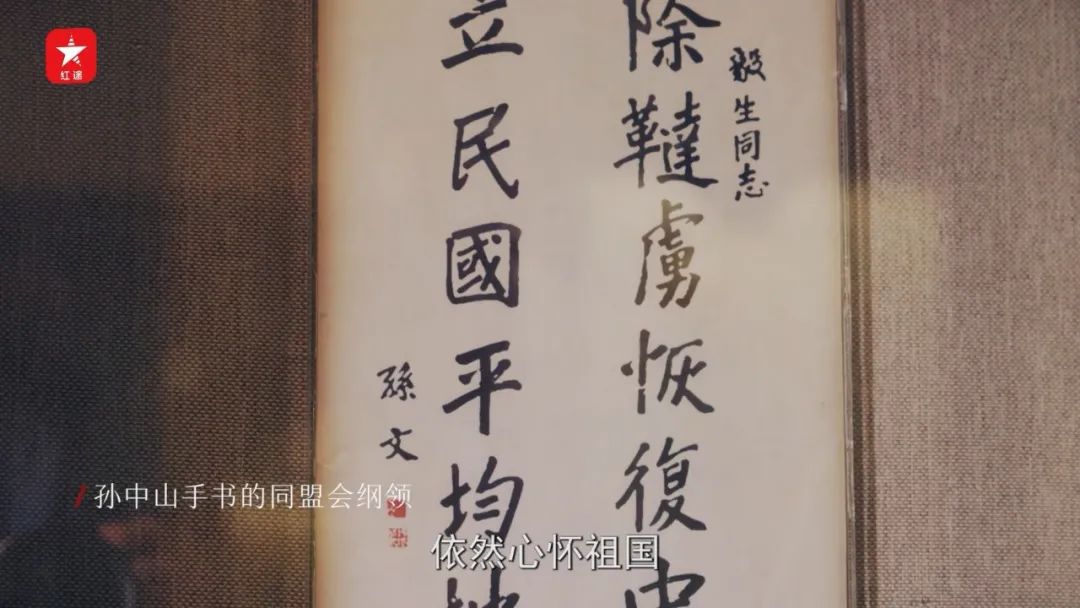 红途
毅生同志
除鞑虏恢復中
立民國平均地
孫文
孙中山手书的同盟会纲领
依然心怀祖国